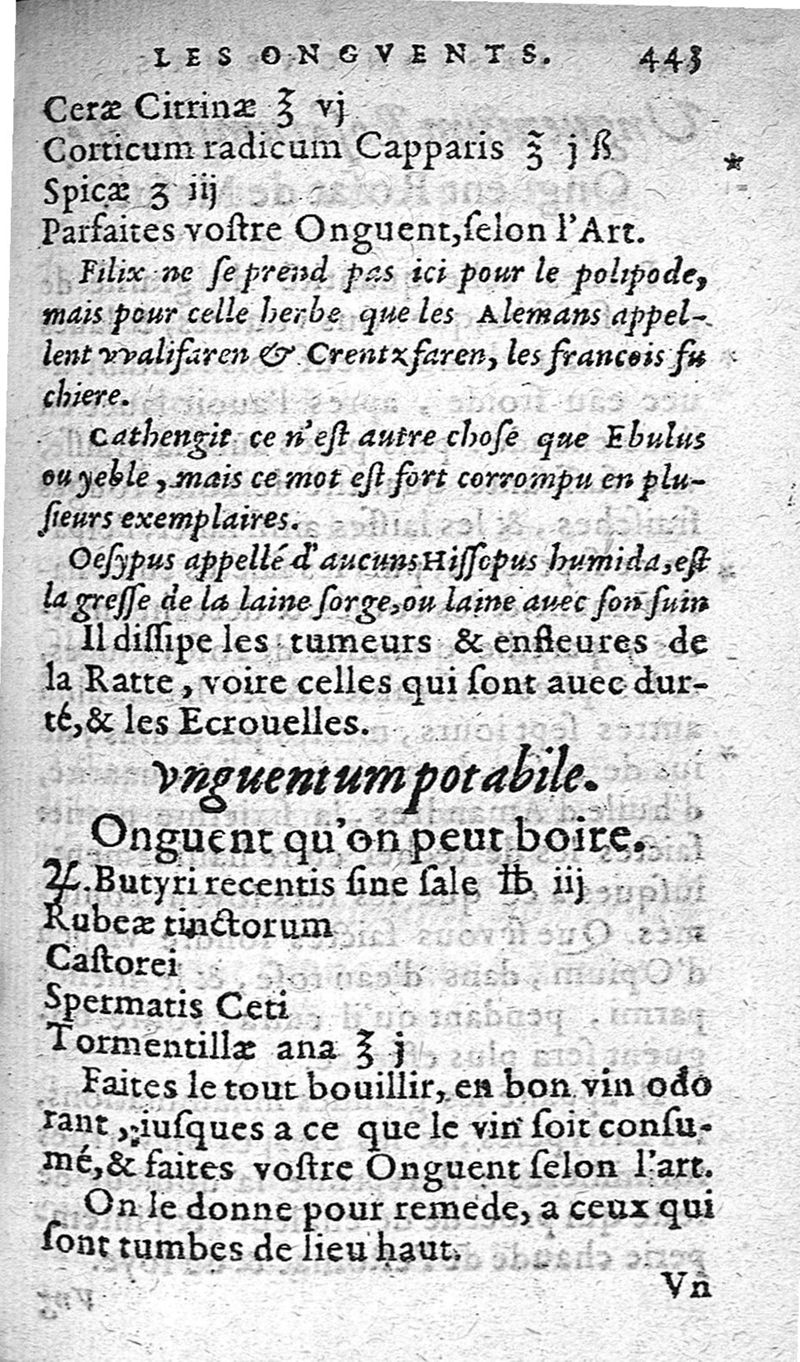 LES ONGVENTS. 443
Ceræ Citrinæ ℥ vj
Corticum radicum Capparis ℥ j ß
*
Spicæ ʒ iij
Parfaites vostre Onguent,ſelon l'Art.
Filix ne ſe prend pas ici pour le polipode,
mais pour celle herbe que les Alemans appel-
lent vvalifaren & Crentxfaren, les francois fu
chiere.
Cathengit ce n'eſt autre choſe que Ebulus
ou yeble, mais ce mot eſt fort corrompu en plu-
ſieurs exemplaires.
Oeſypus appellé d'aucuns Hiſſopus humida, eſt
la greſſe de la laine ſorge, ou laine auec ſon ſuin
Il diſſipe les tumeurs & enfleures de
la Ratte, voire celles qui ſont auec dur-
té,& les Ecrouelles.
vnguentum potabile.
Onguent qu'on peut boire.
♃.Butyri recentis ſine ſale ℔ iij
Rubeæ tinctorum
Caſtorei
Spermatis Ceti
Tormentillæ ana ℥ j
Faites le tout bouillir, en bon vin odo
rant, iuſques a ce que le vin ſoit conſu-
mé,& faites voſtre Onguent ſelon l'art.
On le donne pour remede, a ceux qui
ſont tumbes de lieu haut.
Vn